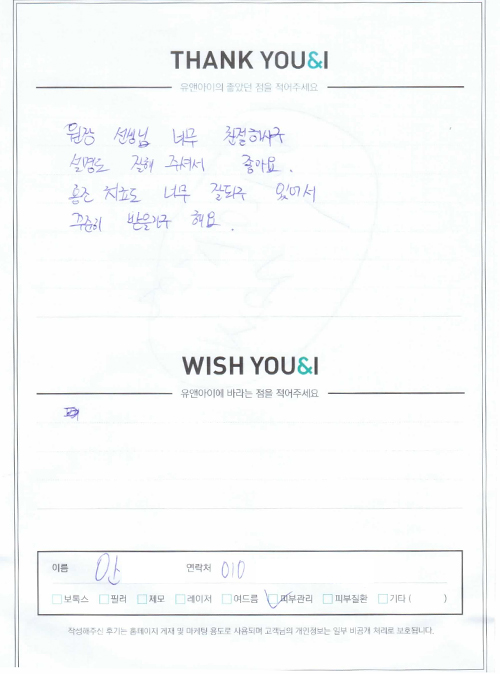 THANK YOU&I
유앤아이의 좋았던 점을 적어주세요
원장 선생님 너무 친절하시구
설명도 잘해 주셔서 좋아요.
치료도 너무 잘되구 있어서
꾸준히 받을려구 해요.
WISH YOU&I
유앤아이에 바라는 점을 적어주세요
이름 안 연락처 010
보톡스 필러 제모 레이저 여드름 피부관리 피부질환 기타 ( )
작성해주신 후기는 홈페이지 게재 및 마케팅 용도로 사용되며 고객님의 개인정보는 일부 비공개 처리로 보호됩니다.